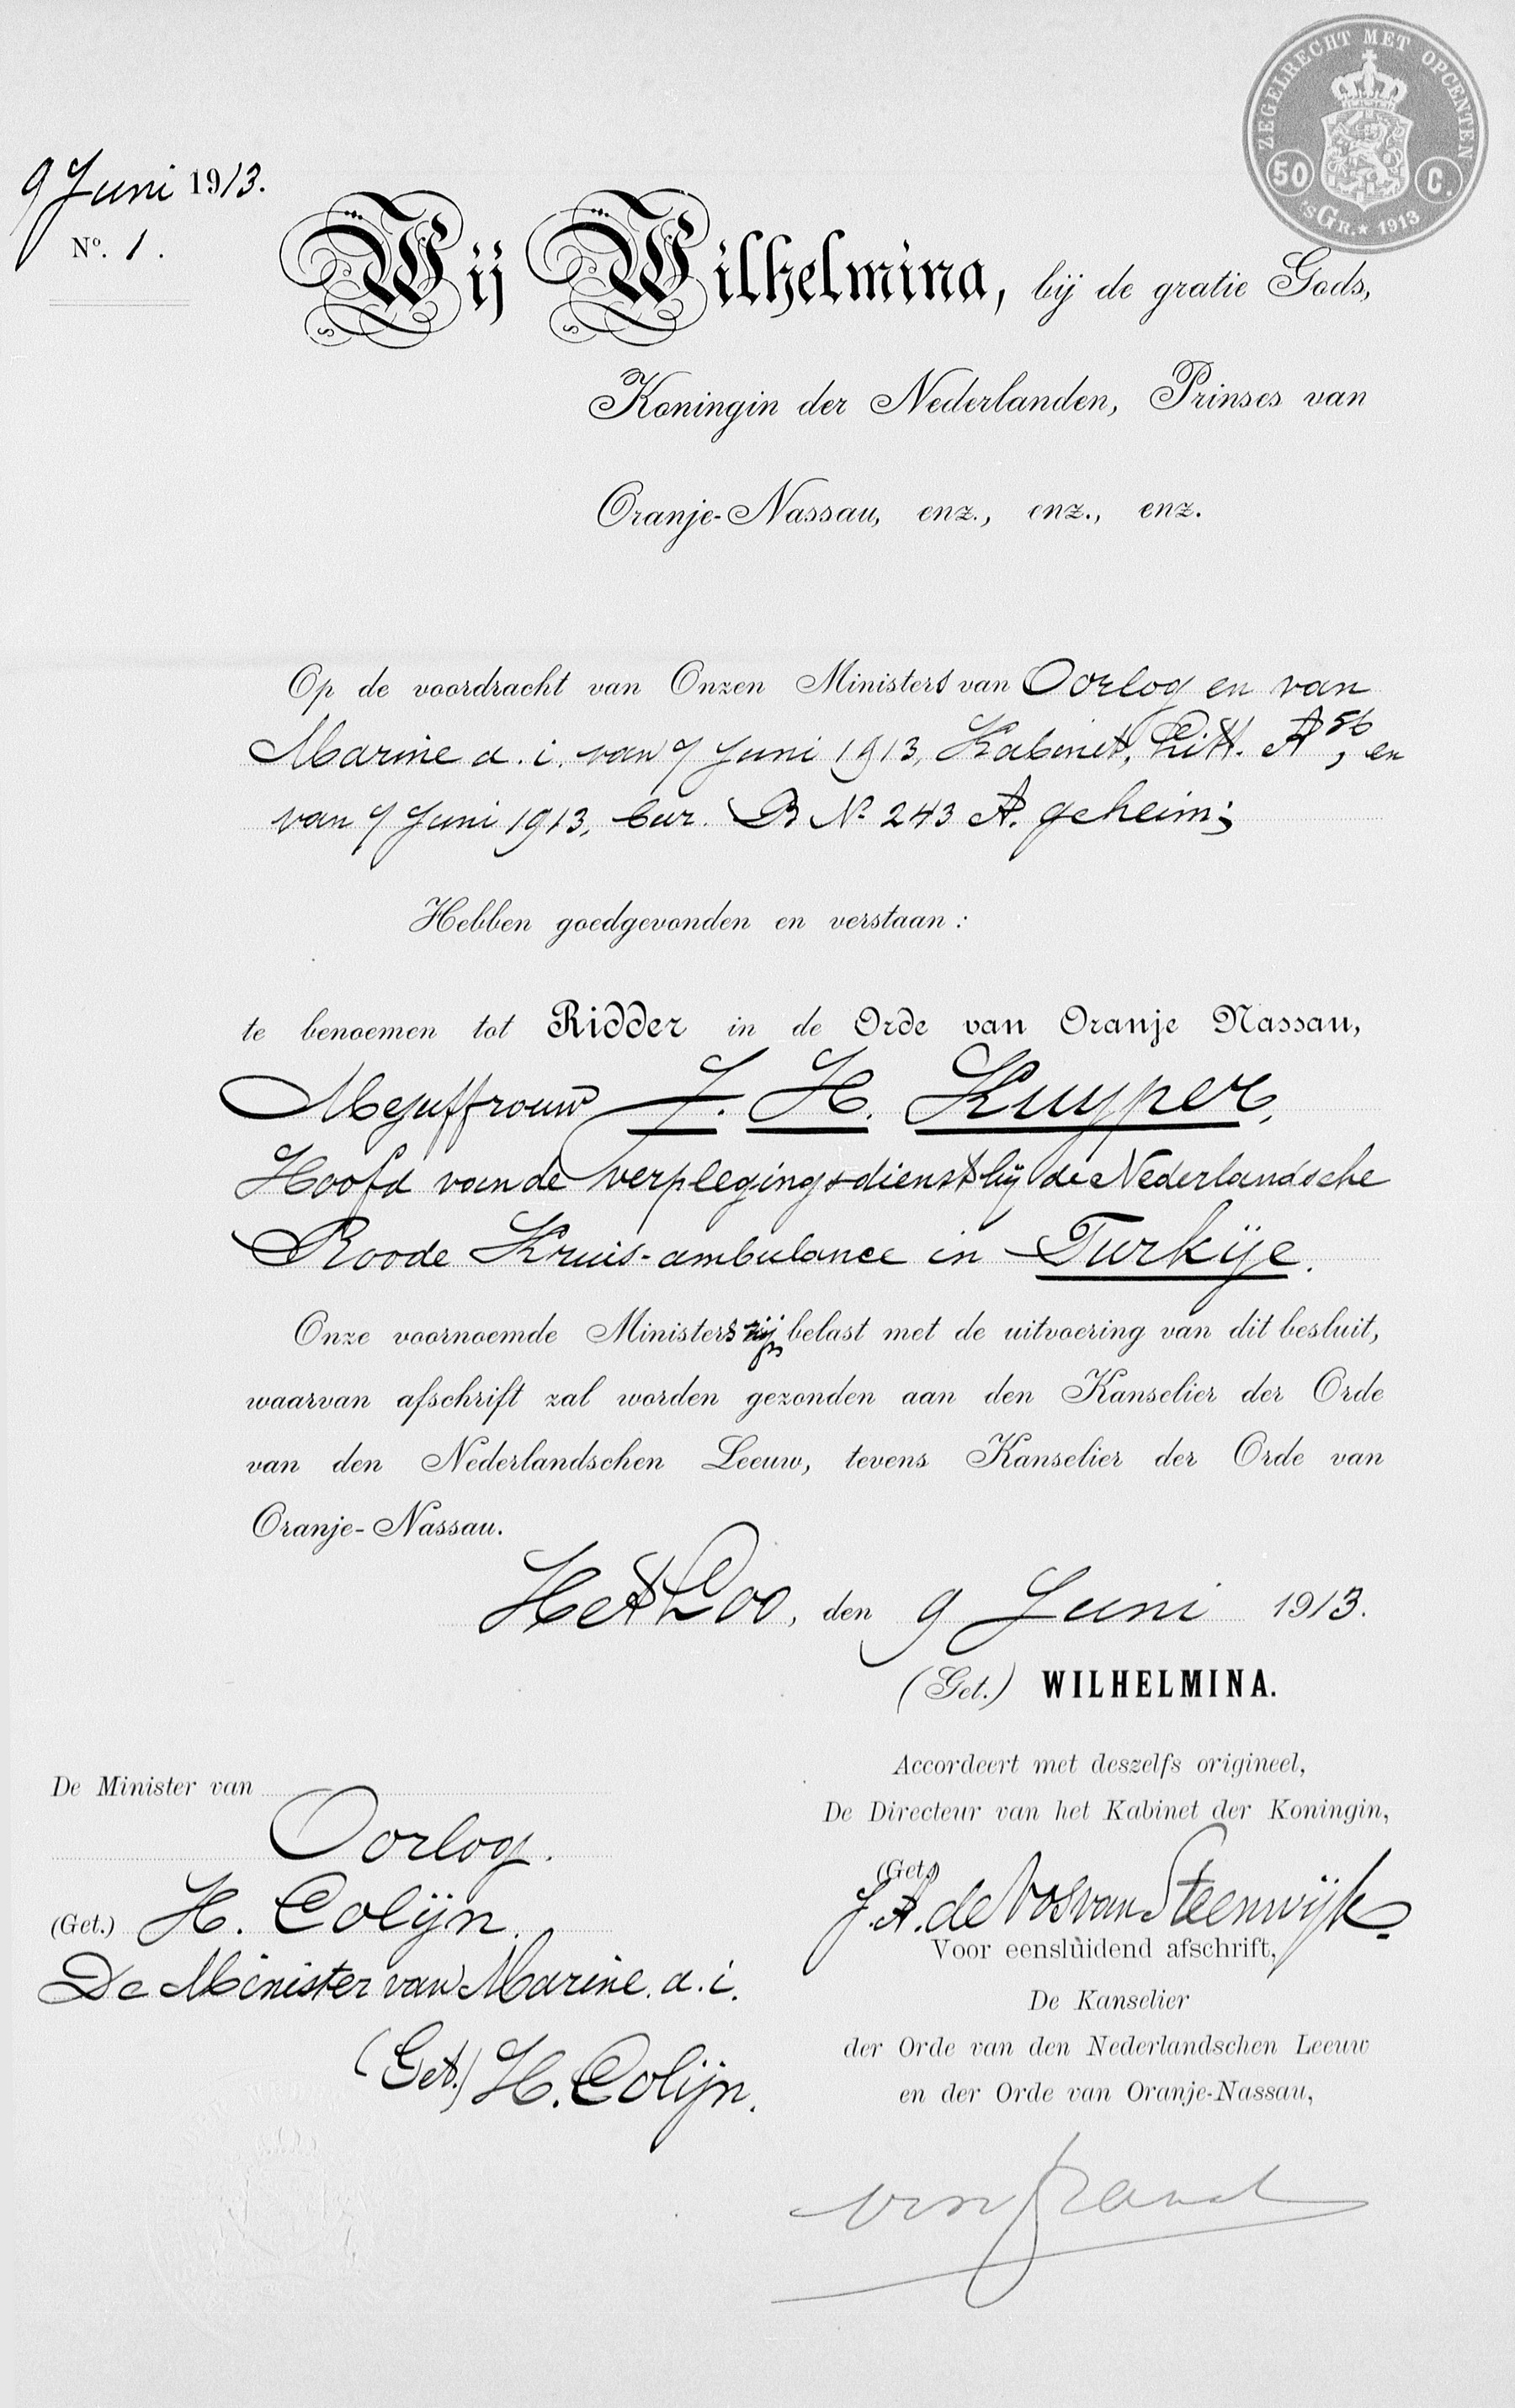 ZEGELRECHT MET OPCENTEN
50 C.
'sGR.★ 1913
9 Juni 1913.
Nº. 1.
Wij Wilhelmina, bij de gratie Gods,
Koningin der Nederlanden, Prinses van
Oranje-Nassau, enz., enz., enz.
Op de voordracht van Onzen Ministers van Oorlog en van
Marine a. i. van 7 Juni 1913, Kabinet, Litt. A⁵⁶, en
van 7 Juni 1913, bur. B Nº 243 A. geheim;
Hebben goedgevonden en verstaan:
te benoemen tot Ridder in de Orde van Oranje Nassau,
Mejuffrouw J. H. Kuyper,
Hoofd van de verplegingsdienst bij de Nederlandsche
Roode Kruis-ambulance in Turkije.
Onze voornoemde Ministers zijn belast met de uitvoering van dit besluit,
waarvan afschrift zal worden gezonden aan den Kanselier der Orde
van den Nederlandschen Leeuw, tevens Kanselier der Orde van
Oranje-Nassau.
Het Loo, den 9 Juni 1913.
(Get.) WILHELMINA.
De Minister van
Oorlog.
(Get.) H. Colijn.
De Minister van Marine. a. i.
(Get.) H. Colijn.
Accordeert met deszelfs origineel,
De Directeur van het Kabinet der Koningin,
(Get.)
J. A. de Vos van Steenwijk.
Voor eenslùidend afschrift,
De Kanselier
der Orde van den Nederlandschen Leeuw
en der Orde van Oranje-Nassau,